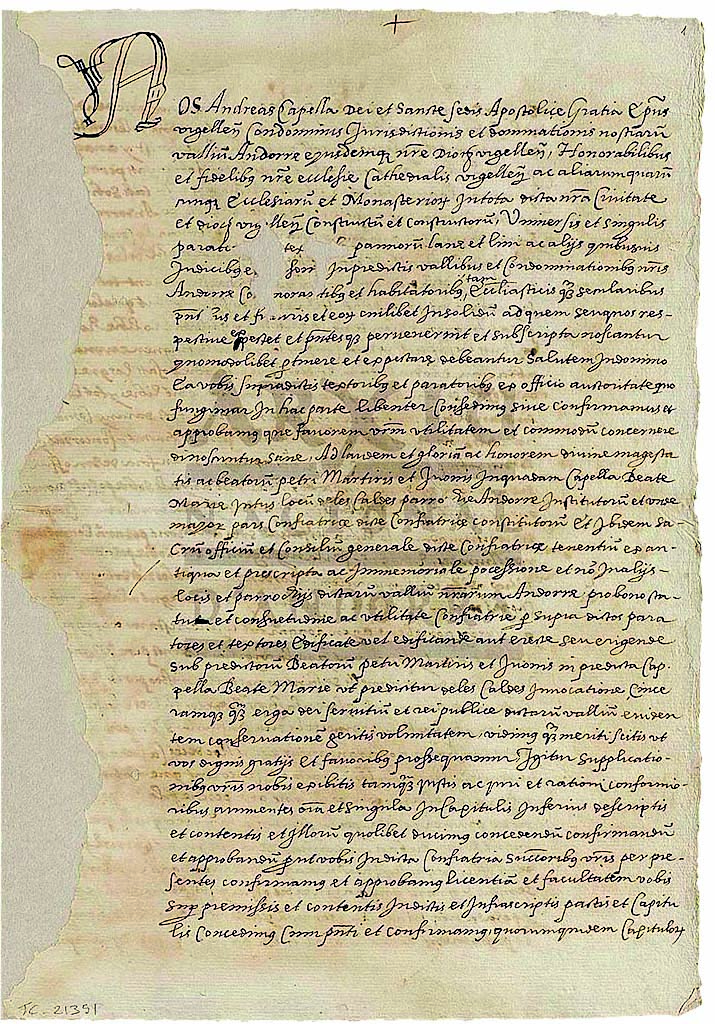 1
NOS Andreas Capella Dei et Sancte sedis Apostolice Gratia Epus
vrgelleñ Condominus Jurisdictionis et dominationis nostrarũ
valliũ Andorre ejusdemq nr̃e Dioc̃ vrgelleñ, Honorabilibus
et fidelibq nr̃e ecclesie Cathedralis vrgelleñ ac aliarumquarũ
cunq Ecclesiarũ et Monasteriorꝝ In tota dicta nr̃a Civitate
et dioc̃ vrgelleñ Constructis et constructorũ, Vniversis et singulis
parato tex pannorum lane et lini ac alijs quibusvis
Judicibq e In predictis vallibus et Condominationibq nr̃is
Andorre Co norantibq et habitatoribq, tam Ecclesiasticis q̃ȝ secularibus
et eoꝝ cuilibet Insolidũ ad quem seu quos res-
pective spectet et pñtesq pervenerint et subscripta noscantur
quomodolibet ptinere et expectare debeantur Salutem In domino
Ea vobis supradictis textoribq et paratoribq ex officio auctoritate quo
fungimur In hac parte libenter Concedimq sive confirmamus et
approbamq que favorem vrm̃ vtilitatem et commodũ concernere
dinoscuntur sane, Ad laudem et gloriã ac honorem divine magesta
tis ac beatorum petri Martiris et Juonis In quadam Capella Beate
Marie Intus locũ deles Caldes parro Andorre Institutorũ et vnde
mayor pars Confratrie dicte Confratrie constitutorũ Et Ibidem sa-
crũ officiũ et Consiliũ generale dicte Confratrie tenentiũ ex an-
tiqua et prescripta ac Immemoriale pocessione et nõ In alijs-
locis et parrochijs dictarũ valliũ nr̃arum Andorre pro bono sta-
tu et consuetudine ac vtilitate Confratrie p supra dictos para
tores et textores edificate vel edificande aut erecte seu erigende
sub predictorũ Beatorũ petri Martiris et Juonis in predicta Cap-
pella Beate Marie vt predicitur deles Caldes Invocatione since
ramq q̃ȝ erga dei servitiũ et rei publice dictarũ valliũ eviden
tem conservationẽ geritis volũtatem, vidimq q̃ȝ meriti scitis vt
vos dignis gratijs et favoribq prosequamur, Igitur Supplicatio-
nibq vr̃is nobis exibitis tamq̃ȝ justis ac juri et rationi conformio-
ribus annuentes oĩa et singula In Capitulis Inferius descriptis
et contentis et Illorũ quolibet ducimq concedendũ confirmandũ
et approbandũ put vobis In dicta Confratria Succoribq vr̃is per pre-
sentes confirmamq et approbamq licentiã et facultatem vobis
Sup premissis et contentis In dictis et Infrascriptis pactis et Capitu
lis Concedimq et confirmamq, quorumquidem Capitulorꝝ
TC-21391